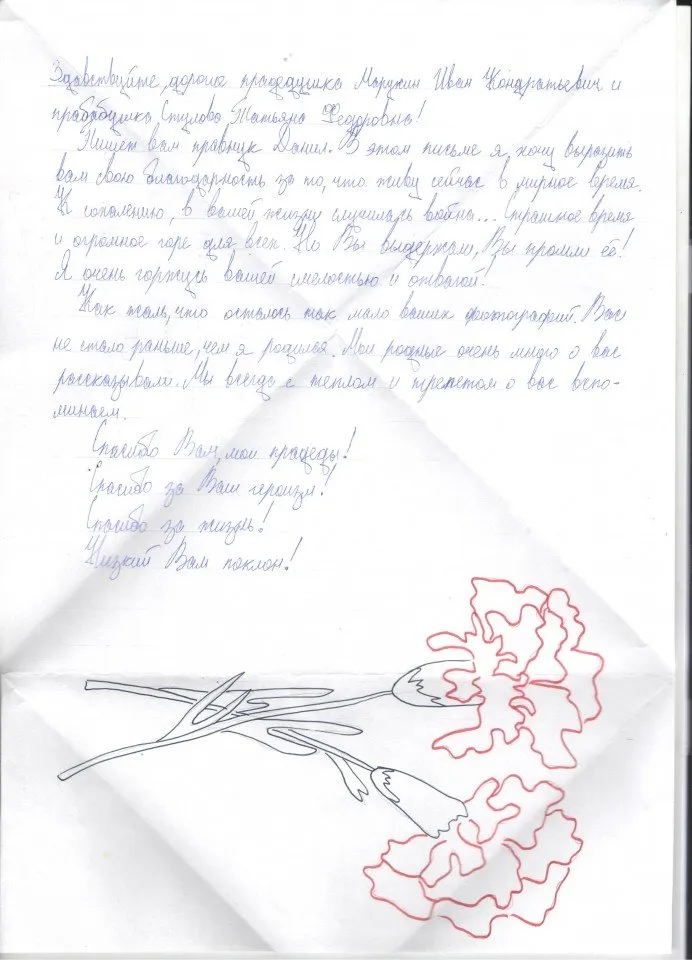 Здавствуйте, дорога прадедушка Маружин Иван Кондратьевич и
прабабушка Стулова Татьяна Федоровна!
Пишет вам правнук Данил. В этом письме я хочу выразить
вам свою благодарность за то, что живу сейчас в мирное время.
К сожалению, в вашей жизни случилась война... Страшное время
и огромное горе для всех. Но Вы выдержали, Вы прошли её!
Я очень горжусь вашей смелостью и отвагой.
Как жаль, что осталось так мало ваших фотографий. Вас
не стало раньше, чем я родился. Мои родные очень много о вас
рассказывали. Мы всегда с теплом и трепетом о вас вспо-
минаем.
Спасибо Вам, мои прадеды!
Спасибо за Ваш героизм!
Спасибо за жизнь!
Низкий Вам поклон!